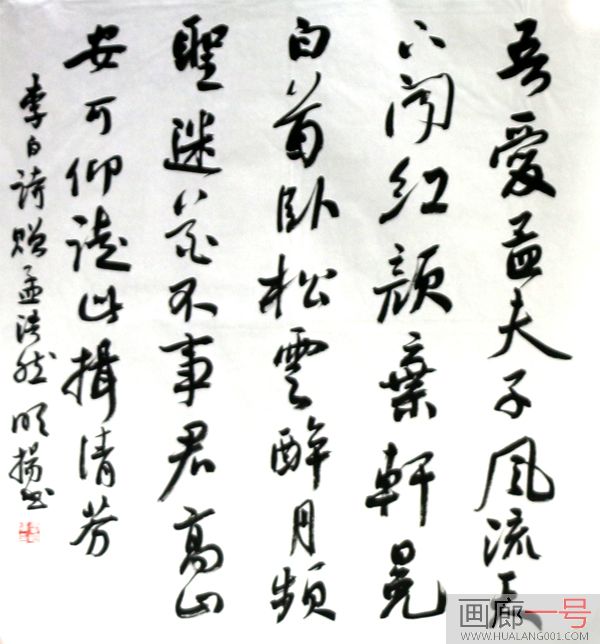 吾愛孟夫子風流天
下闻红颜棄軒冕
白首卧松雲醉月頻
聖迷花不事君高山
安可仰徒此揖清芬
李白詩贈孟浩然明揚书
画廊一号
WWW.HUALANG001.COM